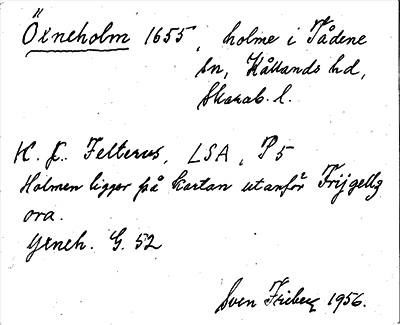 Öxneholm 1655, holme i Tådene
sn, Kållands hd,
Skarab. l.
K. L. Felterus, LSA, P5
Holmen ligger på kartan utanför Frijgellz
ora.
Yxneh. G. 52
Sven Friberg 1956.